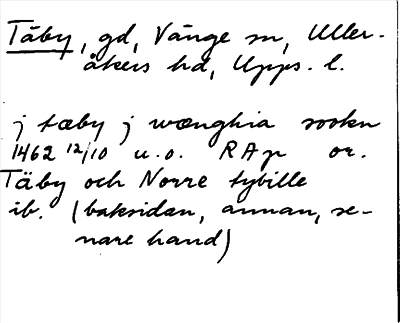 Täby, gd, Vänge sn, Uller-
åkers hd, Upps. l.
j tæby j wænghia sookn
1462 12/10 u.o. RAp or.
Täby och Norre tybille
ib. (baksidan, annan, se-
nare hand)